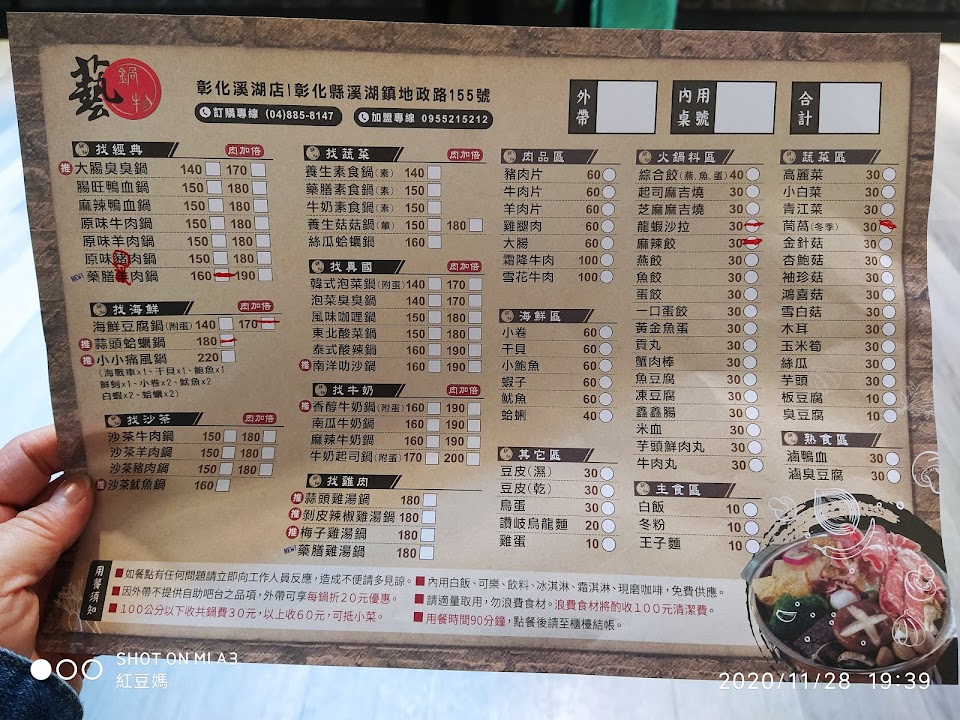 藝
鍋物
彰化溪湖店|彰化縣溪湖鎮地政路155號
訂購專線 (04)885-8147
加盟專線 0955215212
外帶
內用桌號
合計
找經典 肉加倍
推 大腸臭臭鍋 140 170
腸旺鴨血鍋 150 180
麻辣鴨血鍋 150 180
原味牛肉鍋 150 180
原味羊肉鍋 150 180
原味豬肉鍋 150 180
NEW! 藥膳羊肉鍋 160 190
找海鮮 肉加倍
海鮮豆腐鍋(附蛋) 140 170
推 蒜頭蛤蠣鍋 180
推 小小痛風鍋 220
(海戰車x1、干貝x1、鮑魚x1
鮮蚵x1、小卷x2、魷魚x2
白蝦x2、蛤蠣x2)
找沙茶 肉加倍
沙茶牛肉鍋 150 180
沙茶羊肉鍋 150 180
沙茶豬肉鍋 150 180
推 沙茶魷魚鍋 160
找蔬菜 肉加倍
養生素食鍋(素) 140
藥膳素食鍋(素) 150
牛奶素食鍋(素) 150
養生菇菇鍋(葷) 150 180
絲瓜蛤蠣鍋 160
找異國 肉加倍
韓式泡菜鍋(附蛋) 140 170
泡菜臭臭鍋 140 170
風味咖哩鍋 150 180
東北酸菜鍋 150 180
泰式酸辣鍋 160 190
推 南洋叻沙鍋 160 190
找牛奶 肉加倍
推 香醇牛奶鍋(附蛋) 160 190
南瓜牛奶鍋 160 190
麻辣牛奶鍋 160 190
牛奶起司鍋(附蛋) 170 200
找雞肉
推 蒜頭雞湯鍋 180
推 剝皮辣椒雞湯鍋 180
推 梅子雞湯鍋 180
NEW! 藥膳雞湯鍋 180
肉品區
豬肉片 60
牛肉片 60
羊肉片 60
雞腿肉 60
大腸 60
霜降牛肉 100
雪花牛肉 100
海鮮區
小卷 60
干貝 60
小鮑魚 60
蝦子 60
魷魚 60
蛤蜊 40
其它區
豆皮(濕) 30
豆皮(乾) 30
鳥蛋 30
讚岐烏龍麵 20
雞蛋 10
火鍋料區
綜合餃(燕,魚,蛋) 40
起司麻吉燒 30
芝麻麻吉燒 30
龍蝦沙拉 30
麻辣餃 30
燕餃 30
魚餃 30
蛋餃 30
一口蛋餃 30
黃金魚蛋 30
貢丸 30
蟹肉棒 30
魚豆腐 30
凍豆腐 30
鑫鑫腸 30
米血 30
芋頭鮮肉丸 30
牛肉丸 30
主食區
白飯 10
冬粉 10
王子麵 10
蔬菜區
高麗菜 30
小白菜 30
青江菜 30
茼萵(冬季) 30
金針菇 30
杏鮑菇 30
袖珍菇 30
鴻喜菇 30
雪白菇 30
木耳 30
玉米筍 30
絲瓜 30
芋頭 30
板豆腐 10
臭豆腐 10
熟食區
滷鴨血 30
滷臭豆腐 30
用餐須知
如餐點有任何問題請立即向工作人員反應,造成不便請多見諒。
因外帶不提供自助吧台之品項,外帶可享每鍋折20元優惠。
100公分以下收共鍋費30元,以上收60元,可抵小菜。
內用白飯、可樂、飲料、冰淇淋、霜淇淋、現磨咖啡,免費供應。
請適量取用,勿浪費食材。浪費食材將酌收100元清潔費。
用餐時間90分鐘,點餐後請至櫃檯結帳。
SHOT ON MI A3
紅豆媽
2020/11/28 19:39